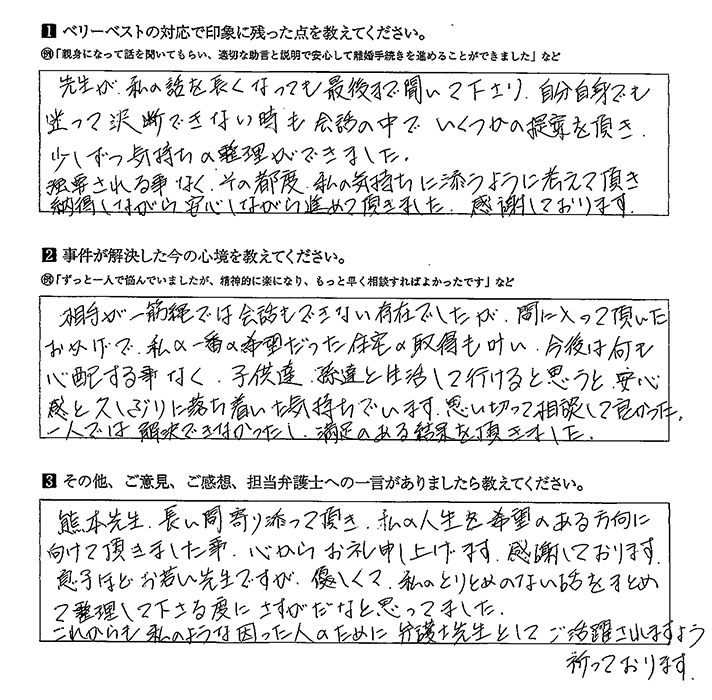 1 ベリーベストの対応で印象に残った点を教えてください。
例「親身になって話を聞いてもらい、適切な助言と説明で安心して離婚手続きを進めることができました」など
先生が、私の話を長くなっても最後まで聞いて下さり、自分自身でも
迷って決断できない時も会話の中で いくつかの提案を頂き、
少しずつ気持ちの整理ができました。
強要される事なく、その都度、私の気持ちに添うように考えて頂き
納得しながら安心しながら進めて頂きました。感謝しております。
2 事件が解決した今の心境を教えてください。
例「ずっと一人で悩んでいましたが、精神的に楽になり、もっと早く相談すればよかったです」など
相手が一筋縄では会話もできない存在でしたが、間に入って頂いた
おかげで、私の一番の希望だった住宅の取得も叶い、今後は何も
心配する事なく、子供達、孫達と生活して行けると思うと、安心
感と久しぶりに落ち着いた気持ちでいます。思い切って相談して良かった。
一人では解決できなかったし、満足のある結果を頂きました。
3 その他、ご意見、ご感想、担当弁護士への一言がありましたら教えてください。
熊本先生、長い間寄り添って頂き、私の人生を希望のある方向に
向けて頂きました事、心からお礼申し上げます。感謝しております。
息子ほどお若い先生ですが、優しくて、私のとりとめのない話をまとめ
て整理して下さる度に さすがだなと思ってました。
これからも私のような困った人のために弁護士先生として ご活躍されますよう
祈っております。